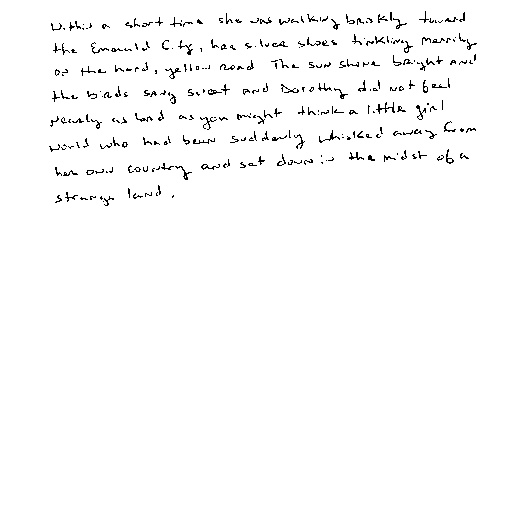 Within a short time she was walking briskly toward
the Emerald City, her silver shoes tinkling merrily
on the hard, yellow road The sun shone bright and
the birds sang sweet and Dorothy did not feel
nearly as bad as you might think a little girl
would who had been suddenly whisked away from
her own country and set down in the midst of a
strange land.